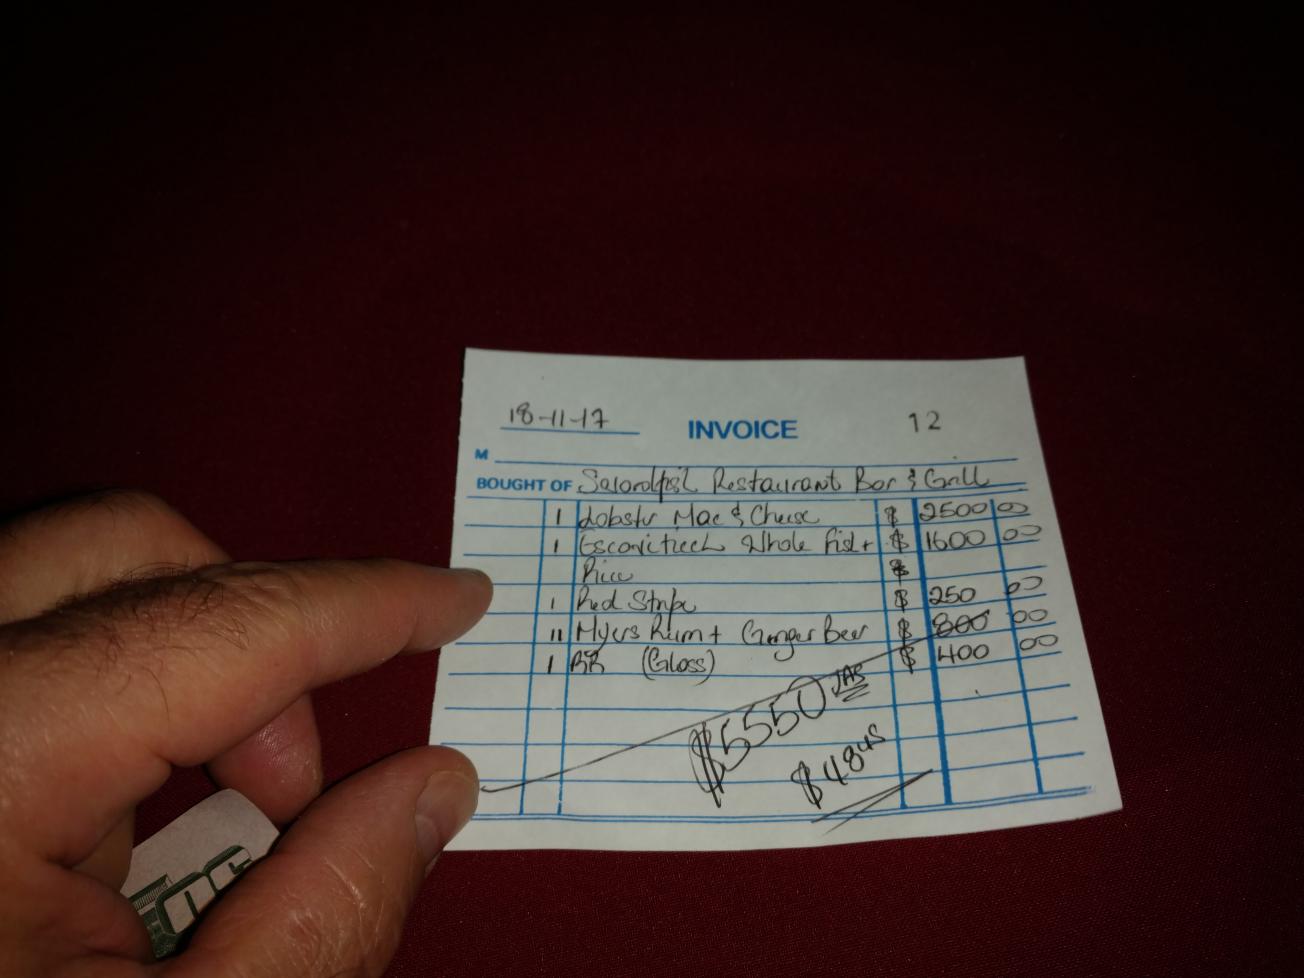 18-11-17
INVOICE
12
M
BOUGHT OF Swordfish Restaurant Bar & Grill
1 Lobster Mac & Cheese $ 2500 00
1 Escovitch Whole Fish + $ 1600 00
Rice $
1 Red Stripe $ 250 00
11 Myers Rum + Ginger Beer $ 800 00
1 (Glass) $ 400 00
$5550 JAS
$48 US
50